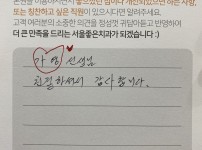 본원을 이용하시면서 좋았었던 점이나 개선되었으면 하는 사항,
또는 칭찬하고 싶은 직원이 있으시다면 알려주세요.
고객 여러분의 소중한 의견을 정성껏 귀담아듣고 반영하여
더 큰 만족을 드리는 서울좋은치과가 되겠습니다 :)
선생님
친절하셔서 감사합니다.